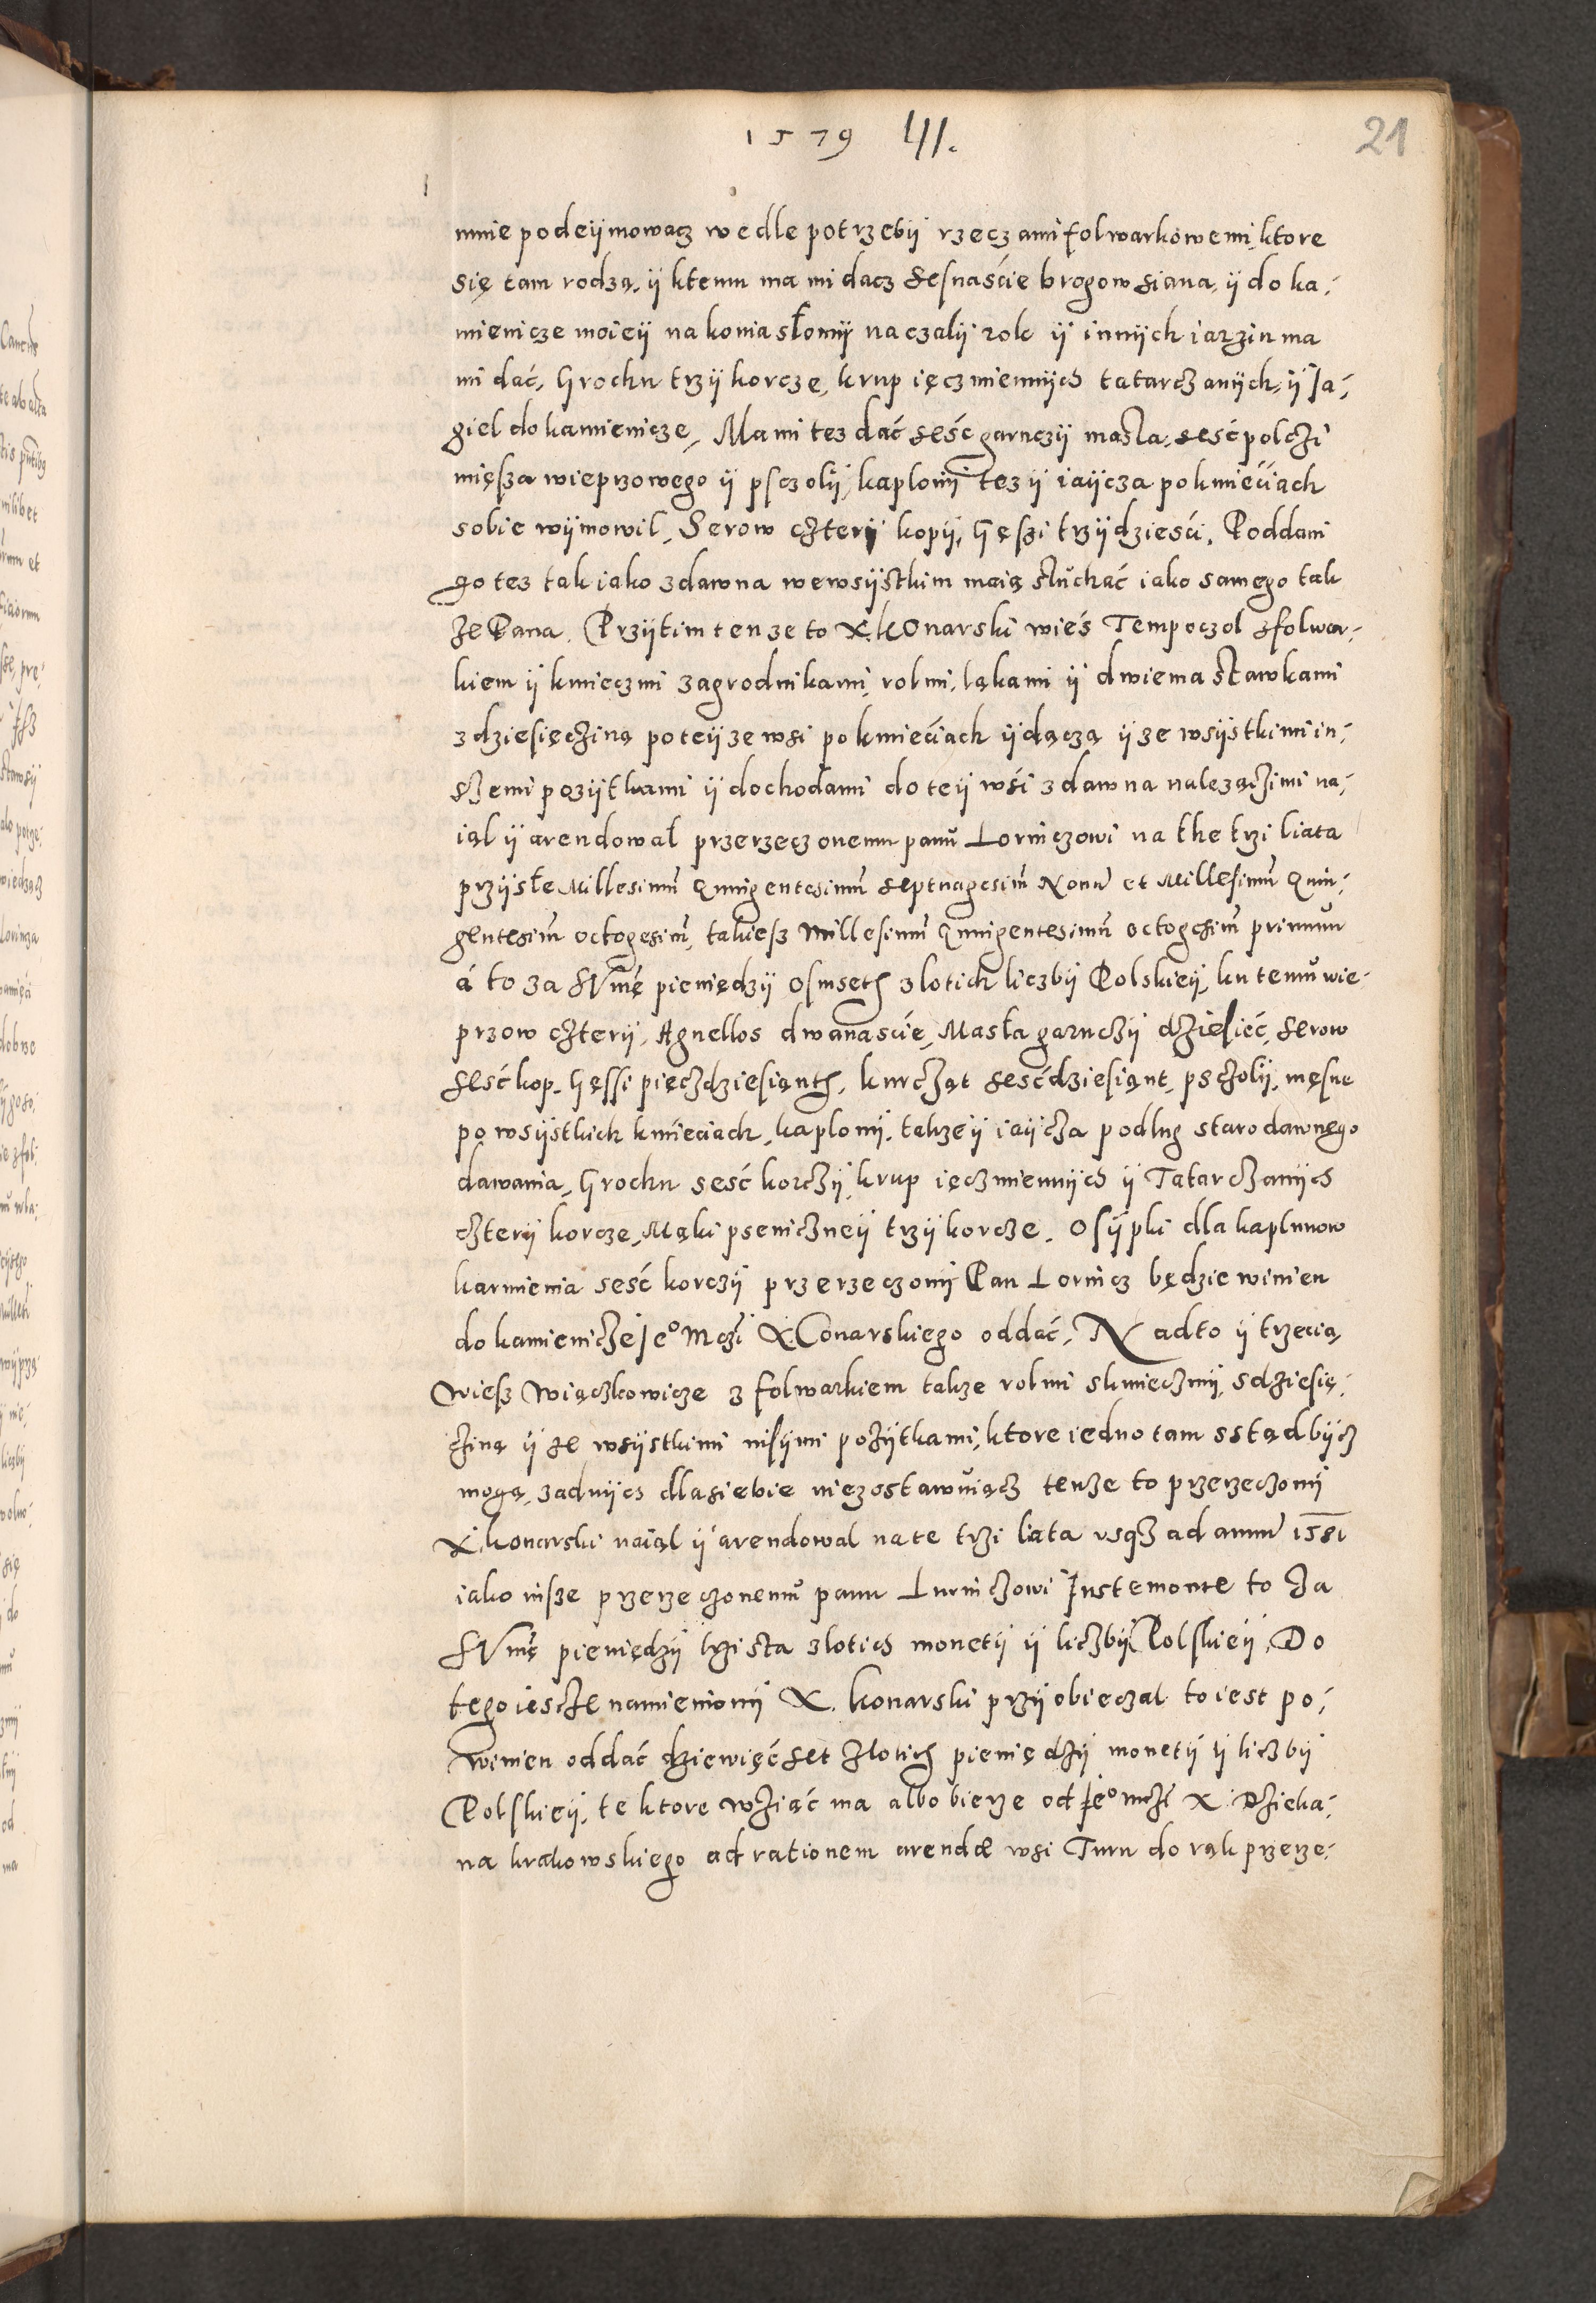 1579 LII.
21
mnie podeÿmowacz wedle potrzebÿ rzeczami folwarkowemi, ktore
się tam rodzą, ÿ ktemu ma mi dacz sesnaście brogow siana, ÿ do ka-
mienicze moieÿ na konia słomÿ na czalÿ rok ÿ innÿch iarzin ma
mi dać, Grochu trzÿ korcze, krup ięczmiennÿch tatarczanÿch, ÿ Ja-
giel do kamienicze, Ma mi tez dać seść garnczÿ masla, seść polczi
mięsza wieprzowego ÿ psczolÿ, kaplonÿ tez ÿ iaÿcza po kmieciach
sobie wÿmowil, Serow czterÿ kopÿ, Gęsi trzÿdzieści, Poddani
go tez tak iako zdawna wewsÿstkim maią słuchać iako samego tak
ze Pana. Przÿtim tenze to X. Konarski wieś Tempoczol zfolwar-
kiem ÿ kmieczmi zagrodnikami, rolmi, ląkami ÿ dwiema stawkami
z dziesięcziną poteÿze wsi po kmieciach ÿdączą ÿ ze wsÿstkimi in-
szemi pozÿtkami ÿ dochodami do teÿ wśi zdawna nalezączimi na-
iąl ÿ arendował przerzeczonemu panu Lorniczowi na the trzi liata
przÿsłe Millesimũ Quingentesimũ septuagesimũ Nonũ et Millesimũ Quin-
gentesimũ octogesimũ, takiesz Millesimũ Quingentesimũ octogesimũ primum
á to za sVmę pieniędzÿ Osmseth zlotich liczbÿ Polskieÿ, ku temu wie-
przow czterÿ, Agnellos dwanaście, Masła garnczÿ dziesieć, serow
seść kop. Gęssi pięczdziesiąnth, kurcząt seśćdziesiąnt, psczolÿ, męsne
po wsÿstkich kmieciach, kaplonÿ, takzeÿ iaÿcza podlug starodawnego
dawania, Grochu seść korczÿ, krup ięczmiennÿch ÿ Tatarczanÿch
czterÿ korcze, Mąki pseniczneÿ trzÿ korcze. Osÿpki dla kaplunow
karmienia seść korczÿ przerzeczonÿ Pan Lornicz będzie winien
do kamienicze Jeº Mczi X. Conarskiego oddać, Nadto ÿ trzecią
wiesz Wiączkowicze z folwarkiem takze rolmi skmieczmÿ, sdziesię-
cziną ÿ ze wsÿstkimi insÿmi pożÿtkami, ktore iedno tam sstąd bÿcz
mogą, zadnÿch dla siebie niezostawuiącz tenze to przerzeczonÿ
X. Konarski naiąl ÿ arendowal na te trzi liata vsqz ad annũ 1581
iako nisze przerzeczonemu panu Lurniczowi Justemonte to za
sVmę pieniędzÿ trzista zlotich monetÿ ÿ liczbÿ Polskieÿ. Do
tego iescze namienionÿ X. Konarski przÿobieczal to iest po-
winien oddać dziewięćset zlotich pieniędzÿ monetÿ ÿ liczbÿ
Polskieÿ, te ktore wziąć ma albo bierze od Jeº mczi X. Dzieka-
na krakowskiego ad rationem arendæ wsi Turu do rąk przerze-